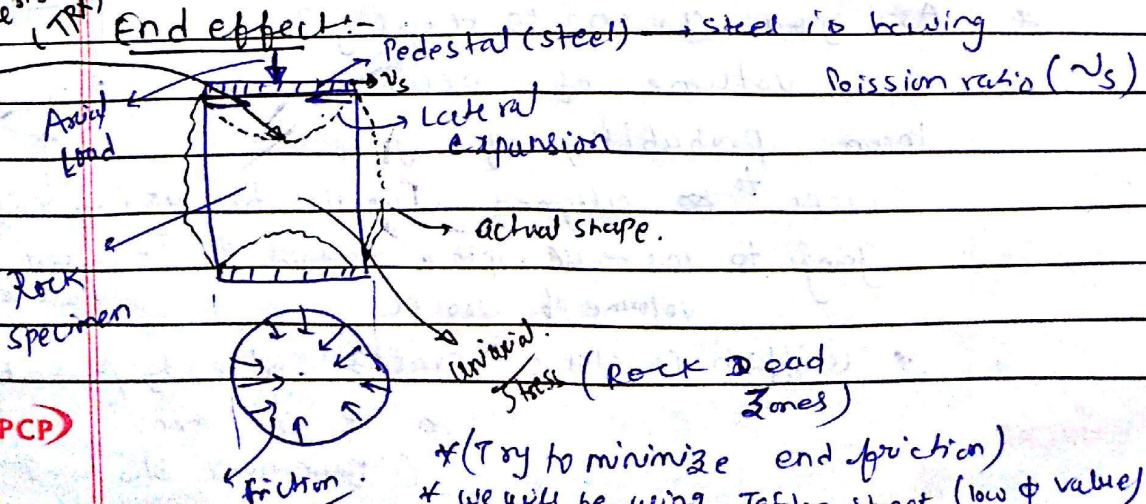 End effect:-
Pedestal (steel) → Steel is having
Poission ratio (νs)
νs
Axial
Load
Lateral
expansion
actual shape.
Rock
specimen
Uniaxial
Stress (Rock Dead
Zones)
PCP
*(Try to minimize end friction)
friction.
* we will be using Teflon sheet (low φ value)